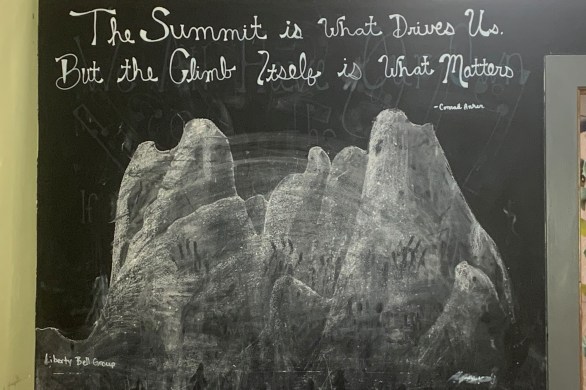 The Summit is What Drives Us.
But the Climb Itself is What Matters
- Conrad Anker
Liberty Bell Group